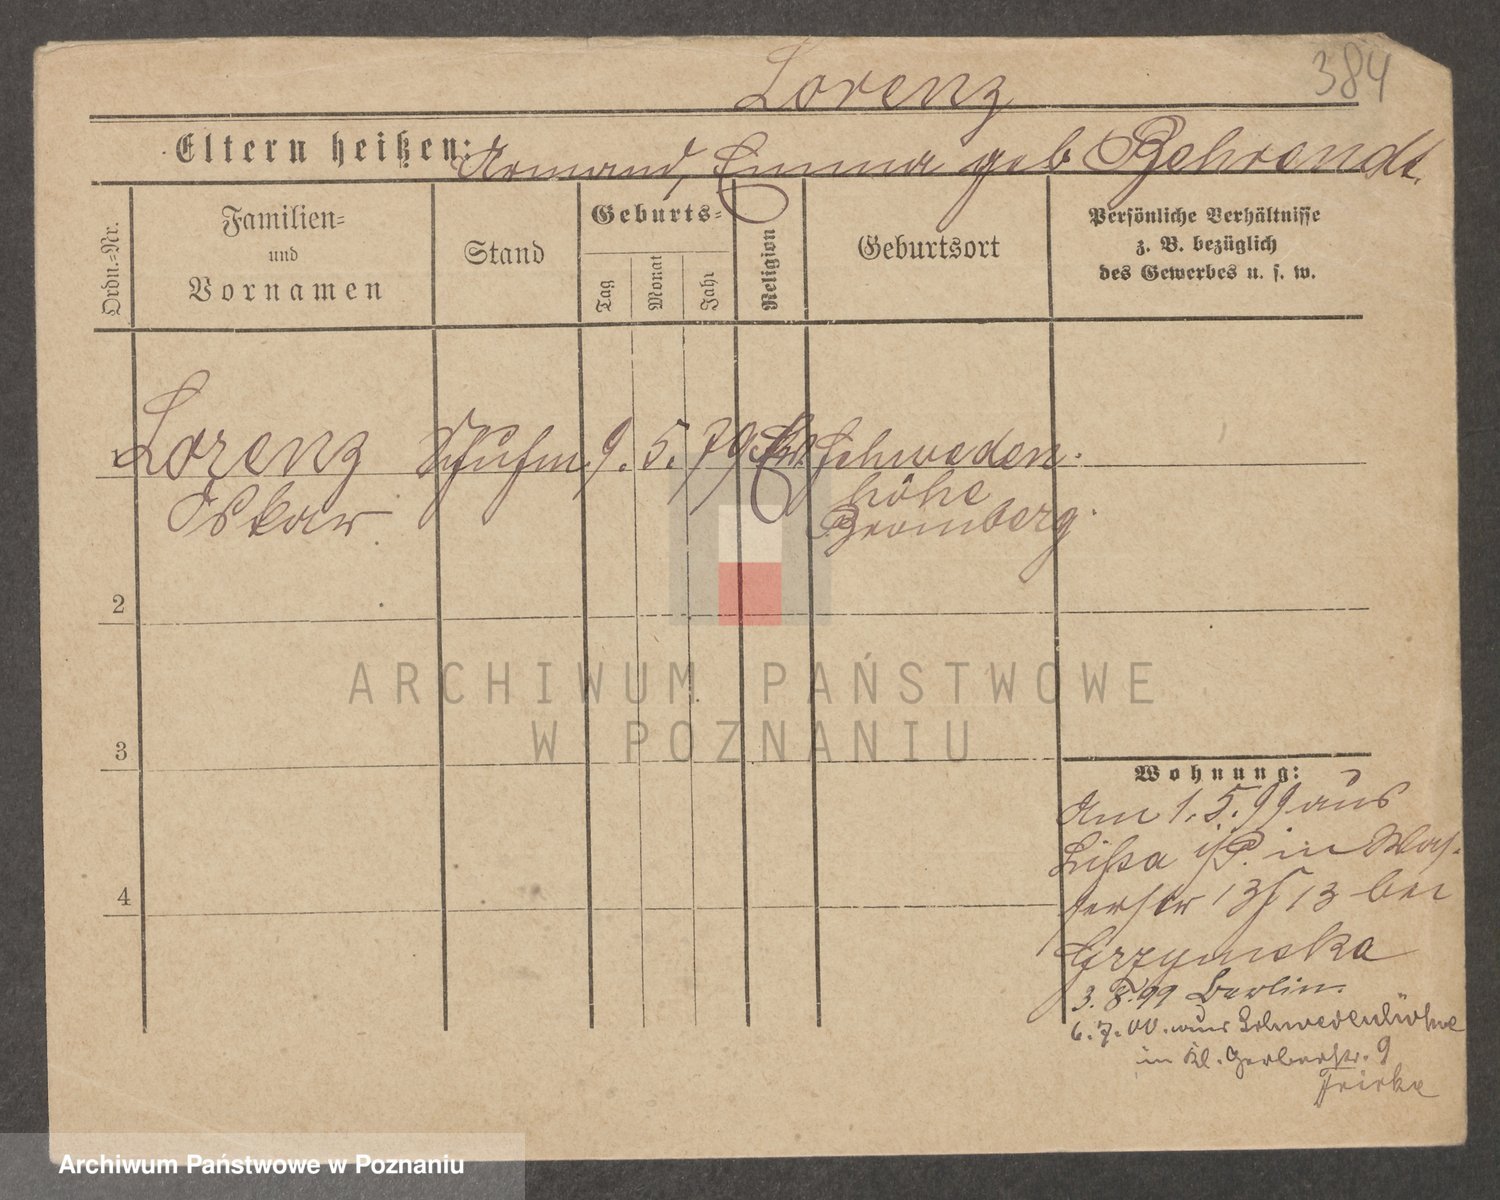 384
Lorenz
Eltern heißen: Armand, Emma geb Behrendt.
Ordn.=Nr.
Familien=
und
Vornamen
Stand
Geburts=
Tag
Monat
Jahr
Religion
Geburtsort
Persönliche Verhältnisse
z. B. bezüglich
des Gewerbes u. s. w.
1 Lorenz 9. 5. 79. Schweden-
Oskar höhe
Bromberg.
2
3
4
Wohnung:
Am 1. 5. 99 aus
Lissa i/P. in Was-
serstr 13 bei
Grzymska
3. 8. 99 Berlin.
6. 7. 00. aus Schwedenhöhe
in Kl. Gerberstr. 9
ARCHIWUM PAŃSTWOWE
W POZNANIU
Archiwum Państwowe w Poznaniu